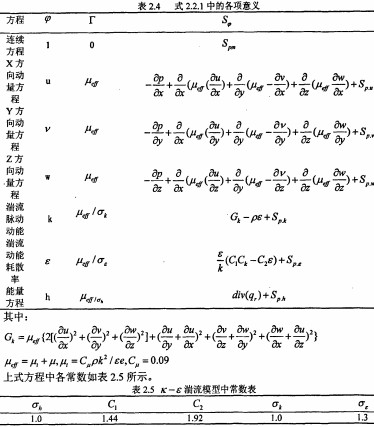 表 2.4 式 2.2.1 中的各项意义
方程 φ Γ S_φ
连续方程 1 0 S_pm
X 方向动量方程 u μ_eff -∂p/∂x+∂/∂x(μ_eff(∂u/∂x)+∂/∂y(μ_eff-∂v/∂x)+∂/∂z(μ_eff ∂w/∂x)+S_p.u
Y 方向动量方程 v μ_eff -∂p/∂y+∂/∂x(μ_eff(∂u/∂y)+∂/∂y(μ_eff-∂v/∂y)+∂/∂z(μ_eff ∂w/∂y)+S_p.v
Z 方向动量方程 w μ_eff -∂p/∂z+∂/∂x(μ_eff(∂u/∂z)+∂/∂y(μ_eff-∂v/∂z)+∂/∂z(μ_eff ∂w/∂z)+S_p.w
湍流脉动动能 k μ_eff/σ_k G_k-ρε+S_p.k
湍流动能耗散率 ε μ_eff/σ_ε ε/k(C₁C_k-C₂ε)+S_p.ε
能量方程 h μ_eff/σ_h div(q_r)+S_p.h
其中：
G_k=μ_eff{2[(∂u/∂x)²+(∂v/∂y)²+(∂w/∂z)²]+(∂u/∂y+∂u/∂x)²+(∂v/∂z+∂w/∂y)²+(∂w/∂x+∂u/∂z)²}
μ_eff=μ_t+μ,μ_t=C_μρk²/εe,C_μ=0.09
上式方程中各常数如表 2.5 所示。
表 2.5 κ-ε 湍流模型中常数表
σ_h C₁ C₂ σ_k σ_ε
1.0 1.44 1.92 1.0 1.3